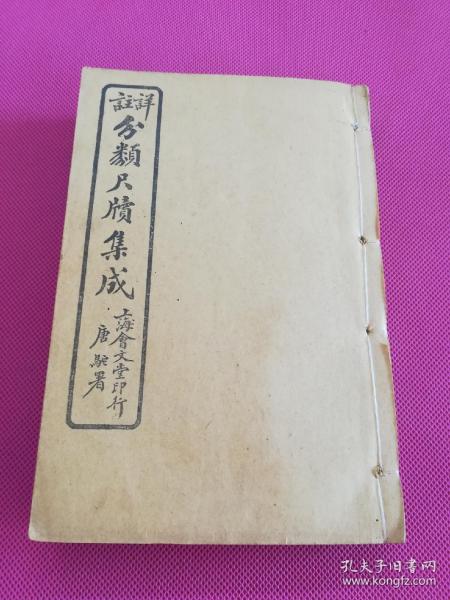 詳註
分類尺牘集成
上海會文堂印行
唐駝署
孔夫子旧书网
www.kongfz.com